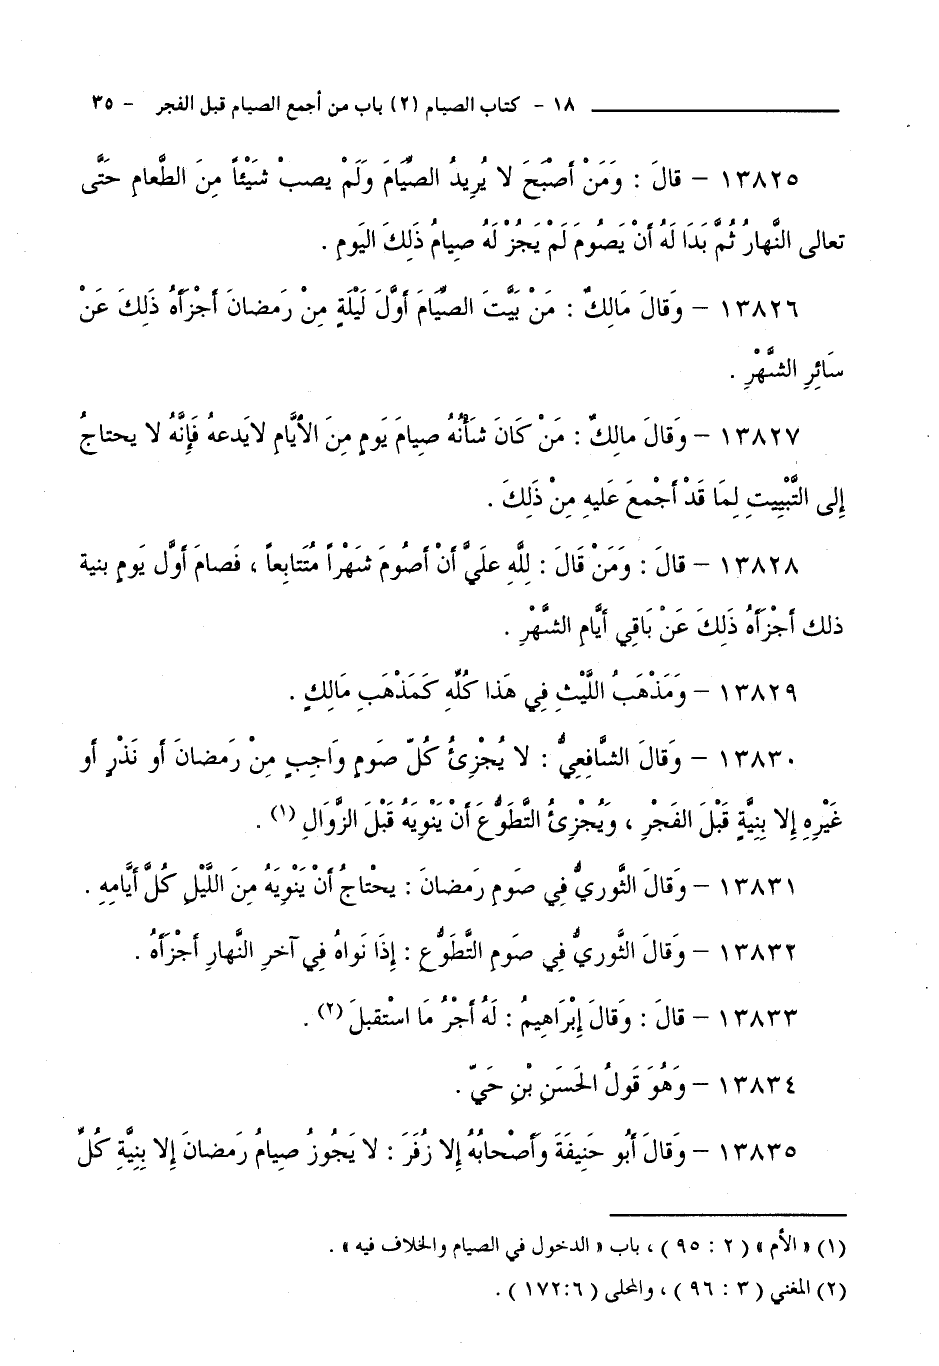 ١٨ - كتاب الصيام (٢) باب من أجمع الصيام قبل الفجر - ٣٥
١٣٨٢٥ – قالَ : وَمَنْ أَصْبَحَ لا يُرِيدُ الصِّيَامَ وَلَمْ يصبْ شَيْئاً مِنَ الطَّعامِ حَتَّى
تعالى النَّهارُ ثُمَّ بَدَا لَهُ أَنْ يَصُومَ لَمْ يَجُزْ لَهُ صِيامُ ذَلِكَ اليَومِ .
١٣٨٢٦ – وَقالَ مَالِكٌ : مَنْ بَيَّتَ الصِّيَامَ أَوَّلَ لَيْلَةٍ مِنْ رَمضانَ أَجْزَأَهُ ذَلِكَ عَنْ
سَائِرِ الشَّهْرِ .
١٣٨٢٧ – وَقالَ مالِكٌ : مَنْ كَانَ شَأْنُهُ صِيامَ يَومٍ مِنَ الأيَّامِ لايَدعهُ فَإِنَّهُ لا يحتاجُ
إِلى التَّبْيِيتِ لِمَا قَدْ أَجْمعَ عَليهِ مِنْ ذَلِكَ .
١٣٨٢٨ – قالَ : وَمَنْ قَالَ : لِلَّهِ عَلَيَّ أَنْ أَصُومَ شَهْراً مُتَتابِعاً ، فَصامَ أَوَّل يَومٍ بنية
ذلك أَجْزَأَهُ ذَلِكَ عَنْ بَاقِي أَيَّامِ الشَّهْرِ .
١٣٨٢٩ – وَمَذْهَبُ اللَّيْثِ فِي هَذا كُلّهِ كَمَذْهَبِ مَالِكٍ .
١٣٨٣٠ – وَقالَ الشَّافِعِيُّ : لا يُجْزِئُ كُلّ صَومٍ وَاجِبٍ مِنْ رَمضانَ أَو نَذْرٍ أَو
غَيْرِهِ إِلا بِنِيَّةٍ قَبْلَ الفَجْرِ ، وَيُجْزِئُ التَّطَوُّعَ أَنْ يَنْوِيَهُ قَبْلَ الزَّوَالِ (١) .
١٣٨٣١ – وَقَالَ الثَّوريُّ فِي صَومِ رَمضانَ : يحْتاجُ أَنْ يَنْوِيَهُ مِنَ اللَّيْلِ كُلَّ أَيَّامِهِ .
١٣٨٣٢ – وَقَالَ الثَّوريُّ فِي صَومِ التَّطَوُّعِ : إِذَا نَواهُ فِي آخرِ النَّهارِ أَجْزَأَهُ .
١٣٨٣٣ – قالَ : وَقَالَ إِبْرَاهِيمُ : لَهُ أَجْرُ مَا اسْتقبلَ (٢) .
١٣٨٣٤ – وَهُوَ قَولُ الحَسَنِ بْنِ حَيّ .
١٣٨٣٥ – وَقَالَ أَبُو حَنِيفَةَ وَأَصْحابُهُ إِلا زُفَرَ : لا يَجُوزُ صِيامُ رَمضانَ إِلا بِنِيَّةِ كُلِّ
(١) « الأم » ( ٢ : ٩٥ ) ، باب « الدخول في الصيام والخلاف فيه » .
(٢) المغني ( ٣ : ٩٦ ) ، والمحلى ( ٦:١٧٢ ) .